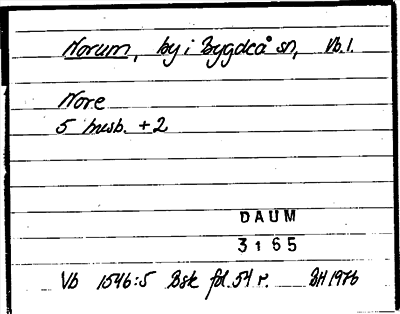 Norum, by i Bygdeå sn, Vb.l.
Nore
5 husb. + 2
DAUM
3165
Vb 1546:5 Bsk fol. 54 r. BH 1976